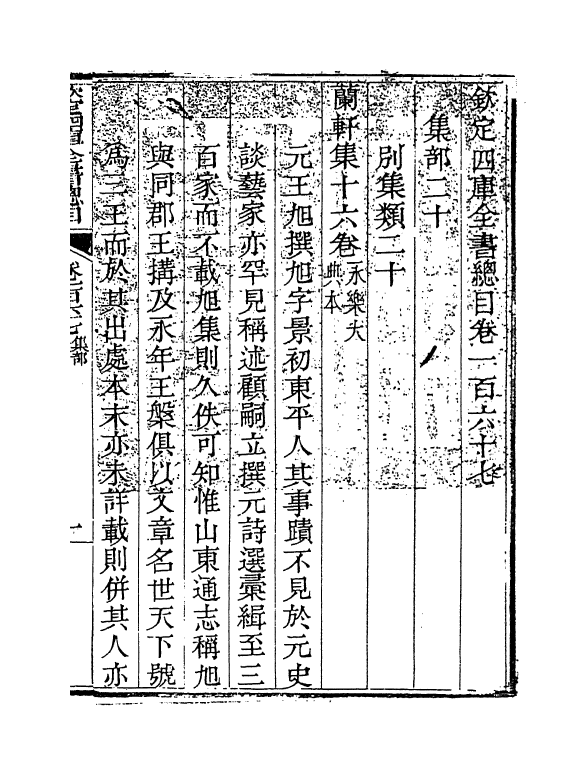 欽定四庫全書總目卷一百六十七
集部二十
別集類二十
蘭軒集十六卷永樂大典本
元王旭撰旭字景初東平人其事蹟不見於元史
談藝家亦罕見稱述顧嗣立撰元詩選彚緝至三
百家而不載旭集則久佚可知惟山東通志稱旭
與同郡王搆及永年王槃俱以文章名世天下號
為三王而於其出處本末亦未詳載則併其人亦
卷一百六十七集部
一